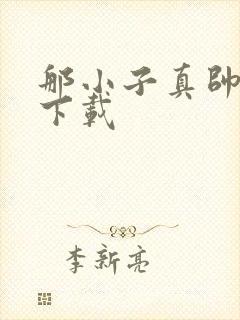 那小子真帥
下載
李新亮